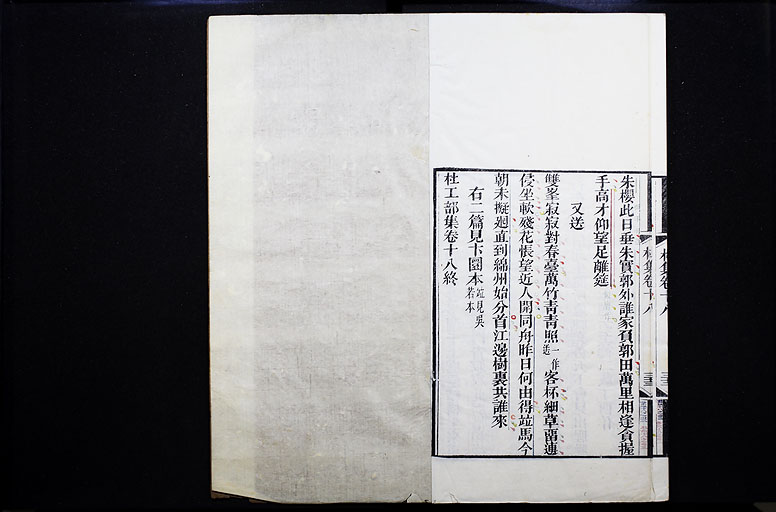 朱櫻此日垂朱實郭外誰家負郭田萬里相逢貪握
手高才仰望足離筵
又送
雙峯寂寂對春臺萬竹青青照一作送客杯細草留連
侵坐軟殘花悵望近人開同舟昨日何由得竝馬今
朝未擬迴直到綿州始分首江邊樹裏共誰來
右二篇見卞圜本竝見吳若本
杜工部集卷十八終
杜集卷十八
三三